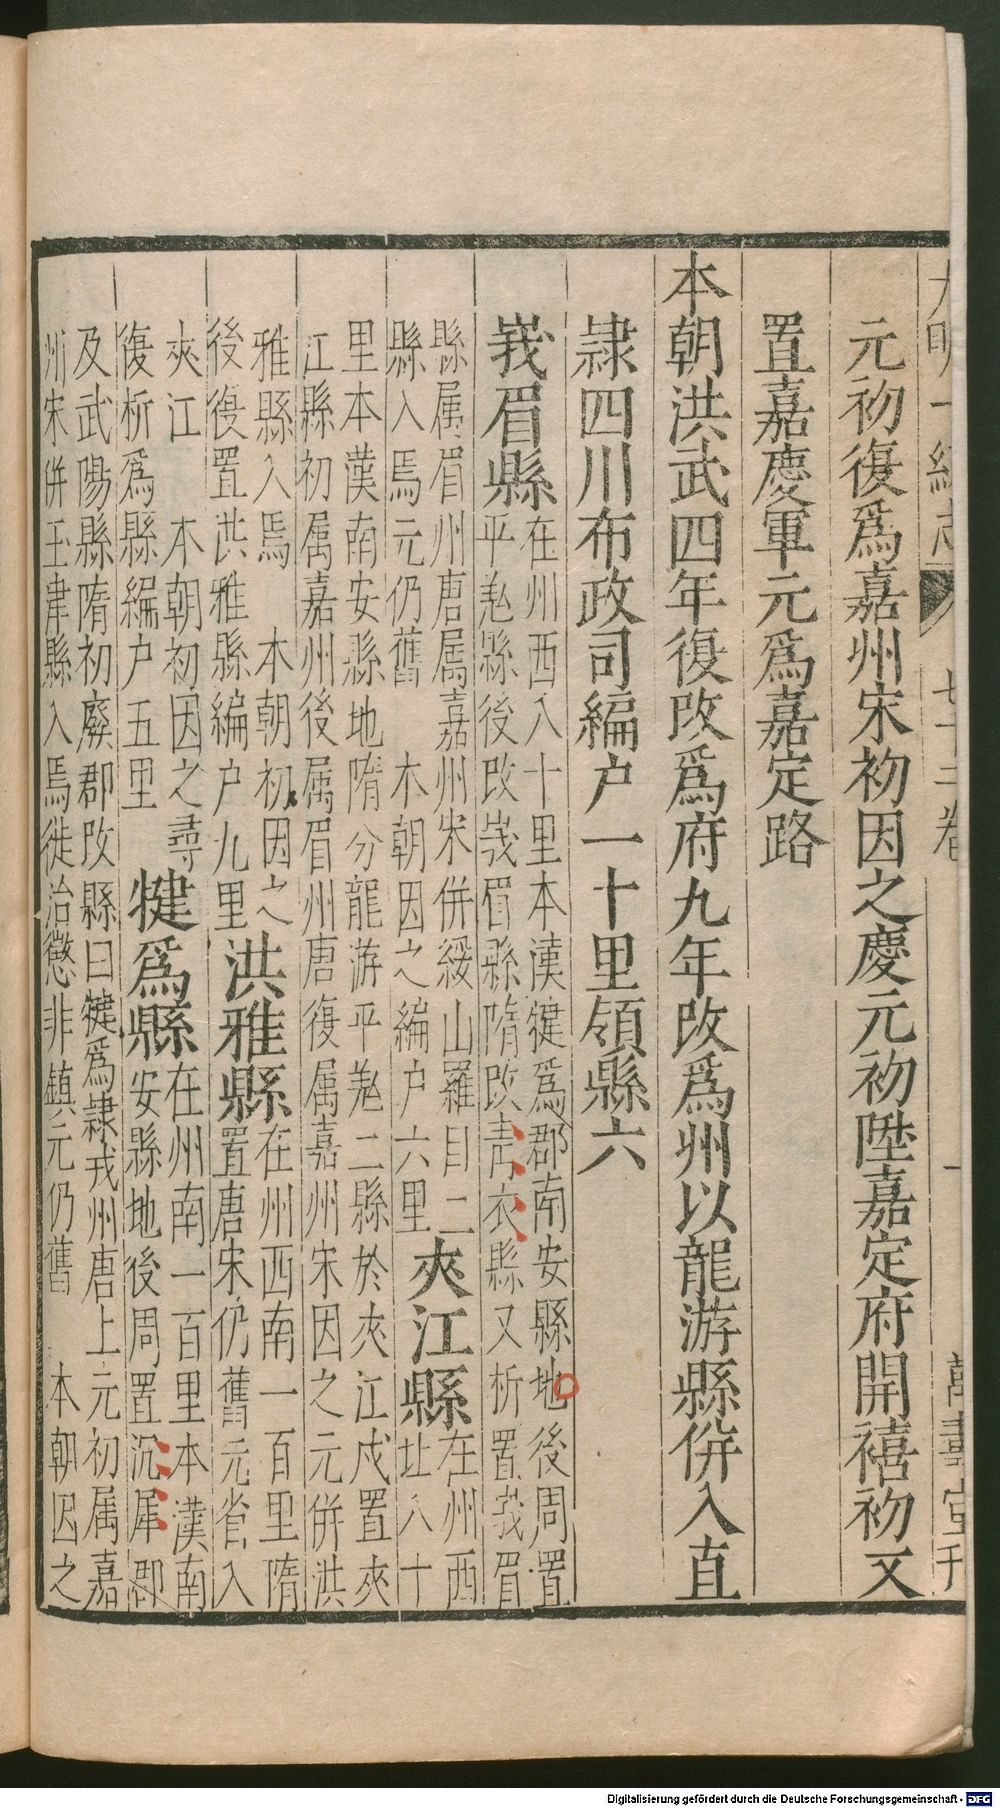 大明一統志 七十二卷 一 萬壽堂刊
元初復爲嘉州宋初因之慶元初陞嘉定府開禧初又
置嘉慶軍元爲嘉定路
本朝洪武四年復改爲府九年改爲州以龍游縣併入直
隷四川布政司編户一十里領縣六
峩眉縣
在州西八十里本漢犍爲郡南安縣地後周置
平羗縣後改峩眉縣隋改青衣縣又析置峩眉
縣属眉州唐属嘉州宋併綏山羅目二
縣入焉元仍舊 本朝因之編户六里
夾江縣
在州西
北八十
里本漢南安縣地隋分龍游平羗二縣於夾江戍置夾
江縣初属嘉州後属眉州唐復属嘉州宋因之元併洪
雅縣入焉 本朝初因之
後復置洪雅縣編户九里
洪雅縣
在州西南一百里隋
置唐宋仍舊元省入
夾江 本朝初因之尋
復析爲縣編户五里
犍爲縣
在州南一百里本漢南
安縣地後周置沉犀郡
及武陽縣隋初廢郡改縣曰犍爲隷戎州唐上元初属嘉
州宋併玉津縣入焉徙治懲非鎮元仍舊 本朝因之
Digitalisierung gefördert durch die Deutsche Forschungsgemeinschaft - DFG